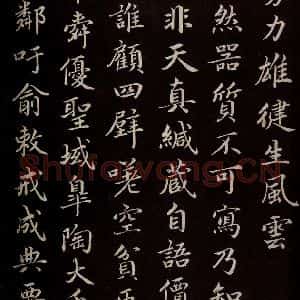 力雄健生風雲
然器質不可寫乃知
非天真緘藏自語價
誰顧四壁老空貧
舜優聖域皐陶大
鄰吁俞敕戒成典
Shufawang.CN